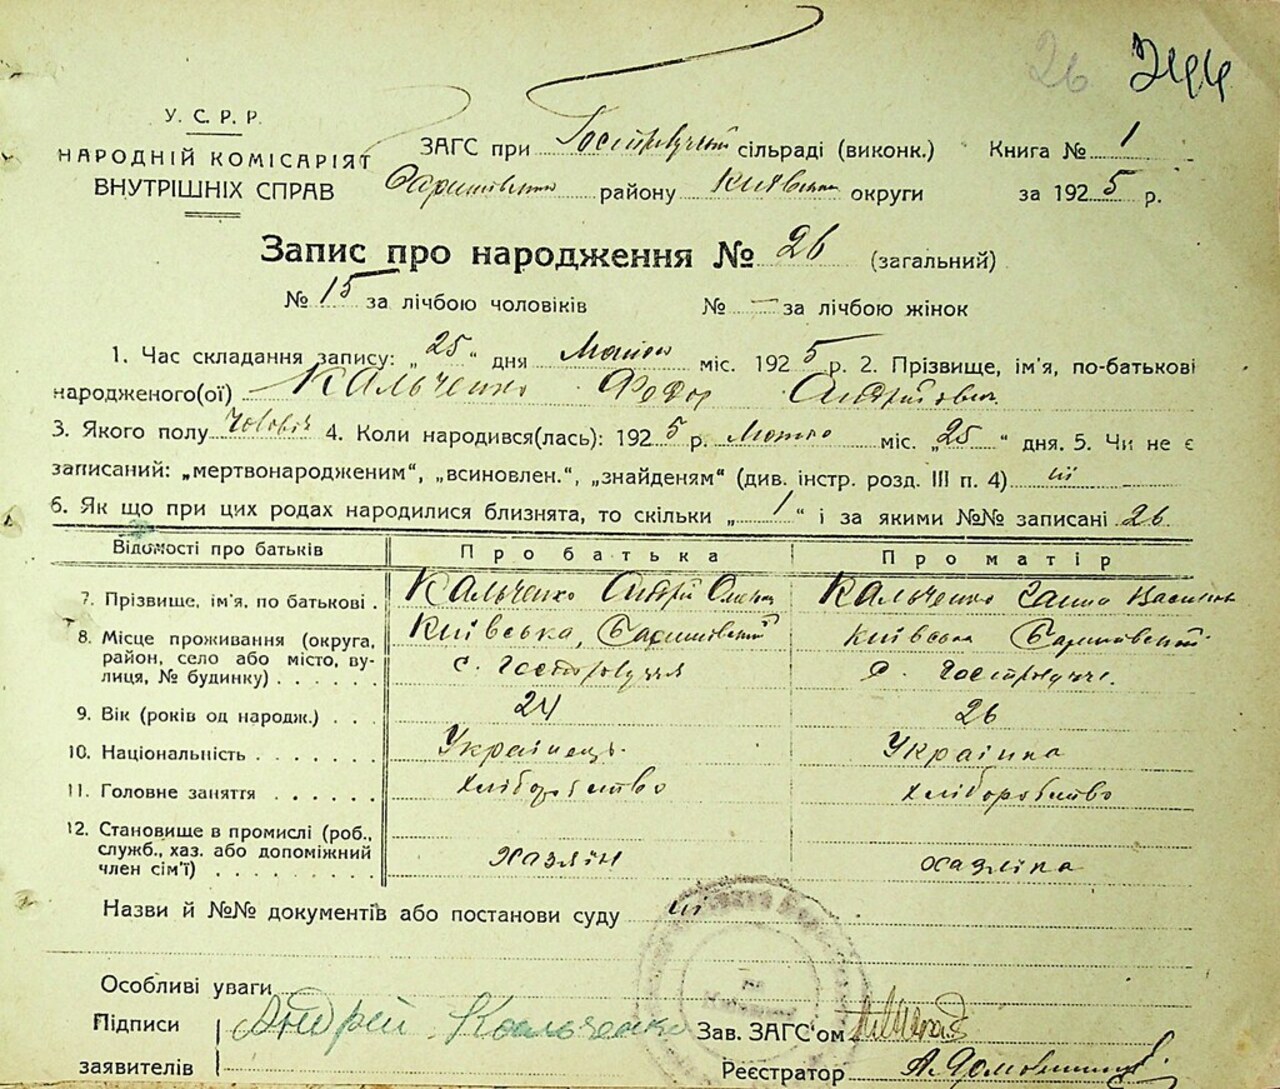 26 244
У. С. Р. Р.
НАРОДНІЙ КОМІСАРІЯТ
ВНУТРІШНІХ СПРАВ
ЗАГС при сільраді (виконк.) Книга № 1
району Київська округи за 1925 р.
Запис про народження № 26 (загальний)
№ 15 за лічбою чоловіків № — за лічбою жінок
1. Час складання запису: „25“ дня міс. 1925 р. 2. Прізвище, ім'я, по-батькові
народженого(ої) Кальченко Федор Андрійович
3. Якого полу Чоловіч 4. Коли народився(лась): 1925 р. міс. „25“ дня. 5. Чи не є
записаний: „мертвонародженим“, „всиновлен.“, „знайденям“ (див. інстр. розд. III п. 4) ні
6. Як що при цих родах народилися близнята, то скільки „1“ і за якими №№ записані 26
Відомості про батьків Про батька Про матір
7. Прізвище, ім'я, по батькові . Кальченко Андрій Кальченко Ганна
8. Місце проживання (округа, Київська, Баришовський Київська Баришовський
район, село або місто, ву- с. Гостролуччя с. Гостролуччє.
лиця, № будинку) . . . . . .
9. Вік (років од народж.) . . . 24 26
10. Національність . . . . . . . Українець. Українка
11. Головне заняття . . . . . . хліборобство хліборобство
12. Становище в промислі (роб.,
служб., хаз. або допоміжний хазяїн хазяїна
член сім'ї) . . . . . . . . . .
Назви й №№ документів або постанови суду ні
Особливі уваги
Підписи Андрей Кальченко Зав. ЗАГС'ом
заявителів Реєстратор